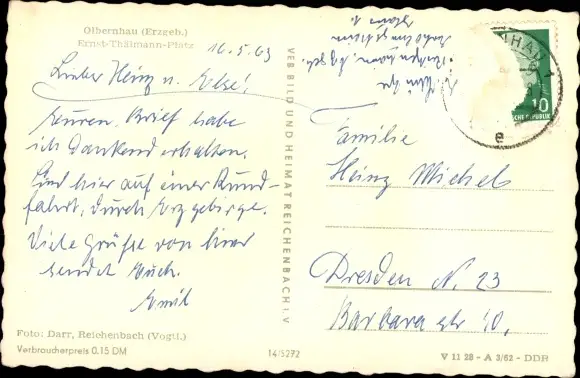 Olbernhau (Erzgeb.)
Ernst-Thälmann-Platz
16.5.63
Lieber Heinz u. Else!
Euren Brief habe
ich dankend erhalten.
Sind hier auf einer Rund-
fahrt, durch Erzgebirge.
Viele Grüße von hier
sendet Euch.
Emil
Foto: Darr, Reichenbach (Vogtl.)
Verbraucherpreis 0,15 DM
14/5272
VEB BILD UND HEIMAT REICHENBACH i. V
10
e
Familie
Heinz Michels
Dresden N. 23
Barbara str 40,
V 11 28 - A 3/62 - DDR